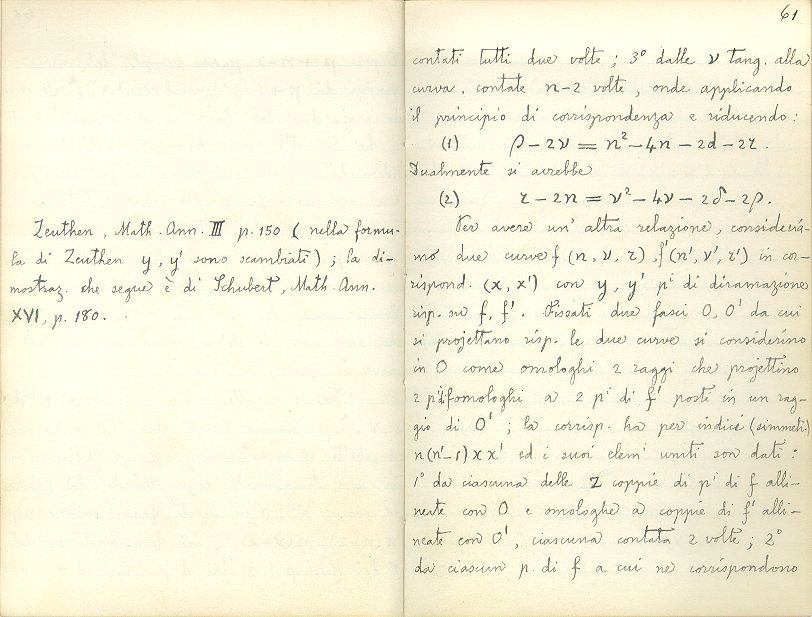 Zeuthen, Math. Ann. III p. 150 (nella formu-
la di Zeuthen y, y' sono scambiati); la di-
mostraz. che segue è di Schubert, Math. Ann.
XVI, p. 180.
61
contati tutti due volte; 3º dalle ν tang. alla
curva, contate n-2 volte, onde applicando
il principio di corrispondenza e riducendo:
(1) ρ - 2ν = n² - 4n - 2d - 2r.
Dualmente si avrebbe
(2) r - 2n = ν² - 4ν - 2δ - 2ρ.
Per avere un' altra relazione, consideria-
mo due curve f (n, ν, r), f'(n', ν', r') in cor-
rispond. (x, x') con y, y' pⁱ di diramazione
risp. su f, f'. Fissati due fasci O, O' da cui
si projettano risp. le due curve si considerino
in O come omologhi 2 raggi che projettino
2 pⁱ di f omologhi a 2 pⁱ di f' posti in un rag-
gio di O'; la corrisp. ha per indice (simmetr.)
n(n'-1)xx' ed i suoi elemⁱ uniti son dati:
1º da ciascuna delle z coppie di pⁱ di f alli-
neate con O e omologhe a coppie di f' alli-
neate con O', ciascuna contata 2 volte; 2º
da ciascun p. di f a cui ne corrispondono